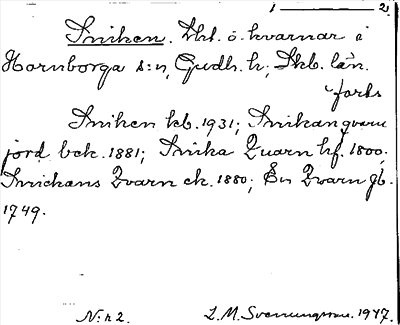 1 — 2.
Sniken. Lht. o. kvarnar i
Hornborga s:n, Gudh. h., Skb. län.
forts
Sniken kb. 1931; Snikanqvarn
jord. bck. 1881; Snika Quarn hf. 1800;
Snickans Qvarn ck. 1880; Än Qwarn gb.
1749.
N:r 2. L. M. Svenungsson. 1947.